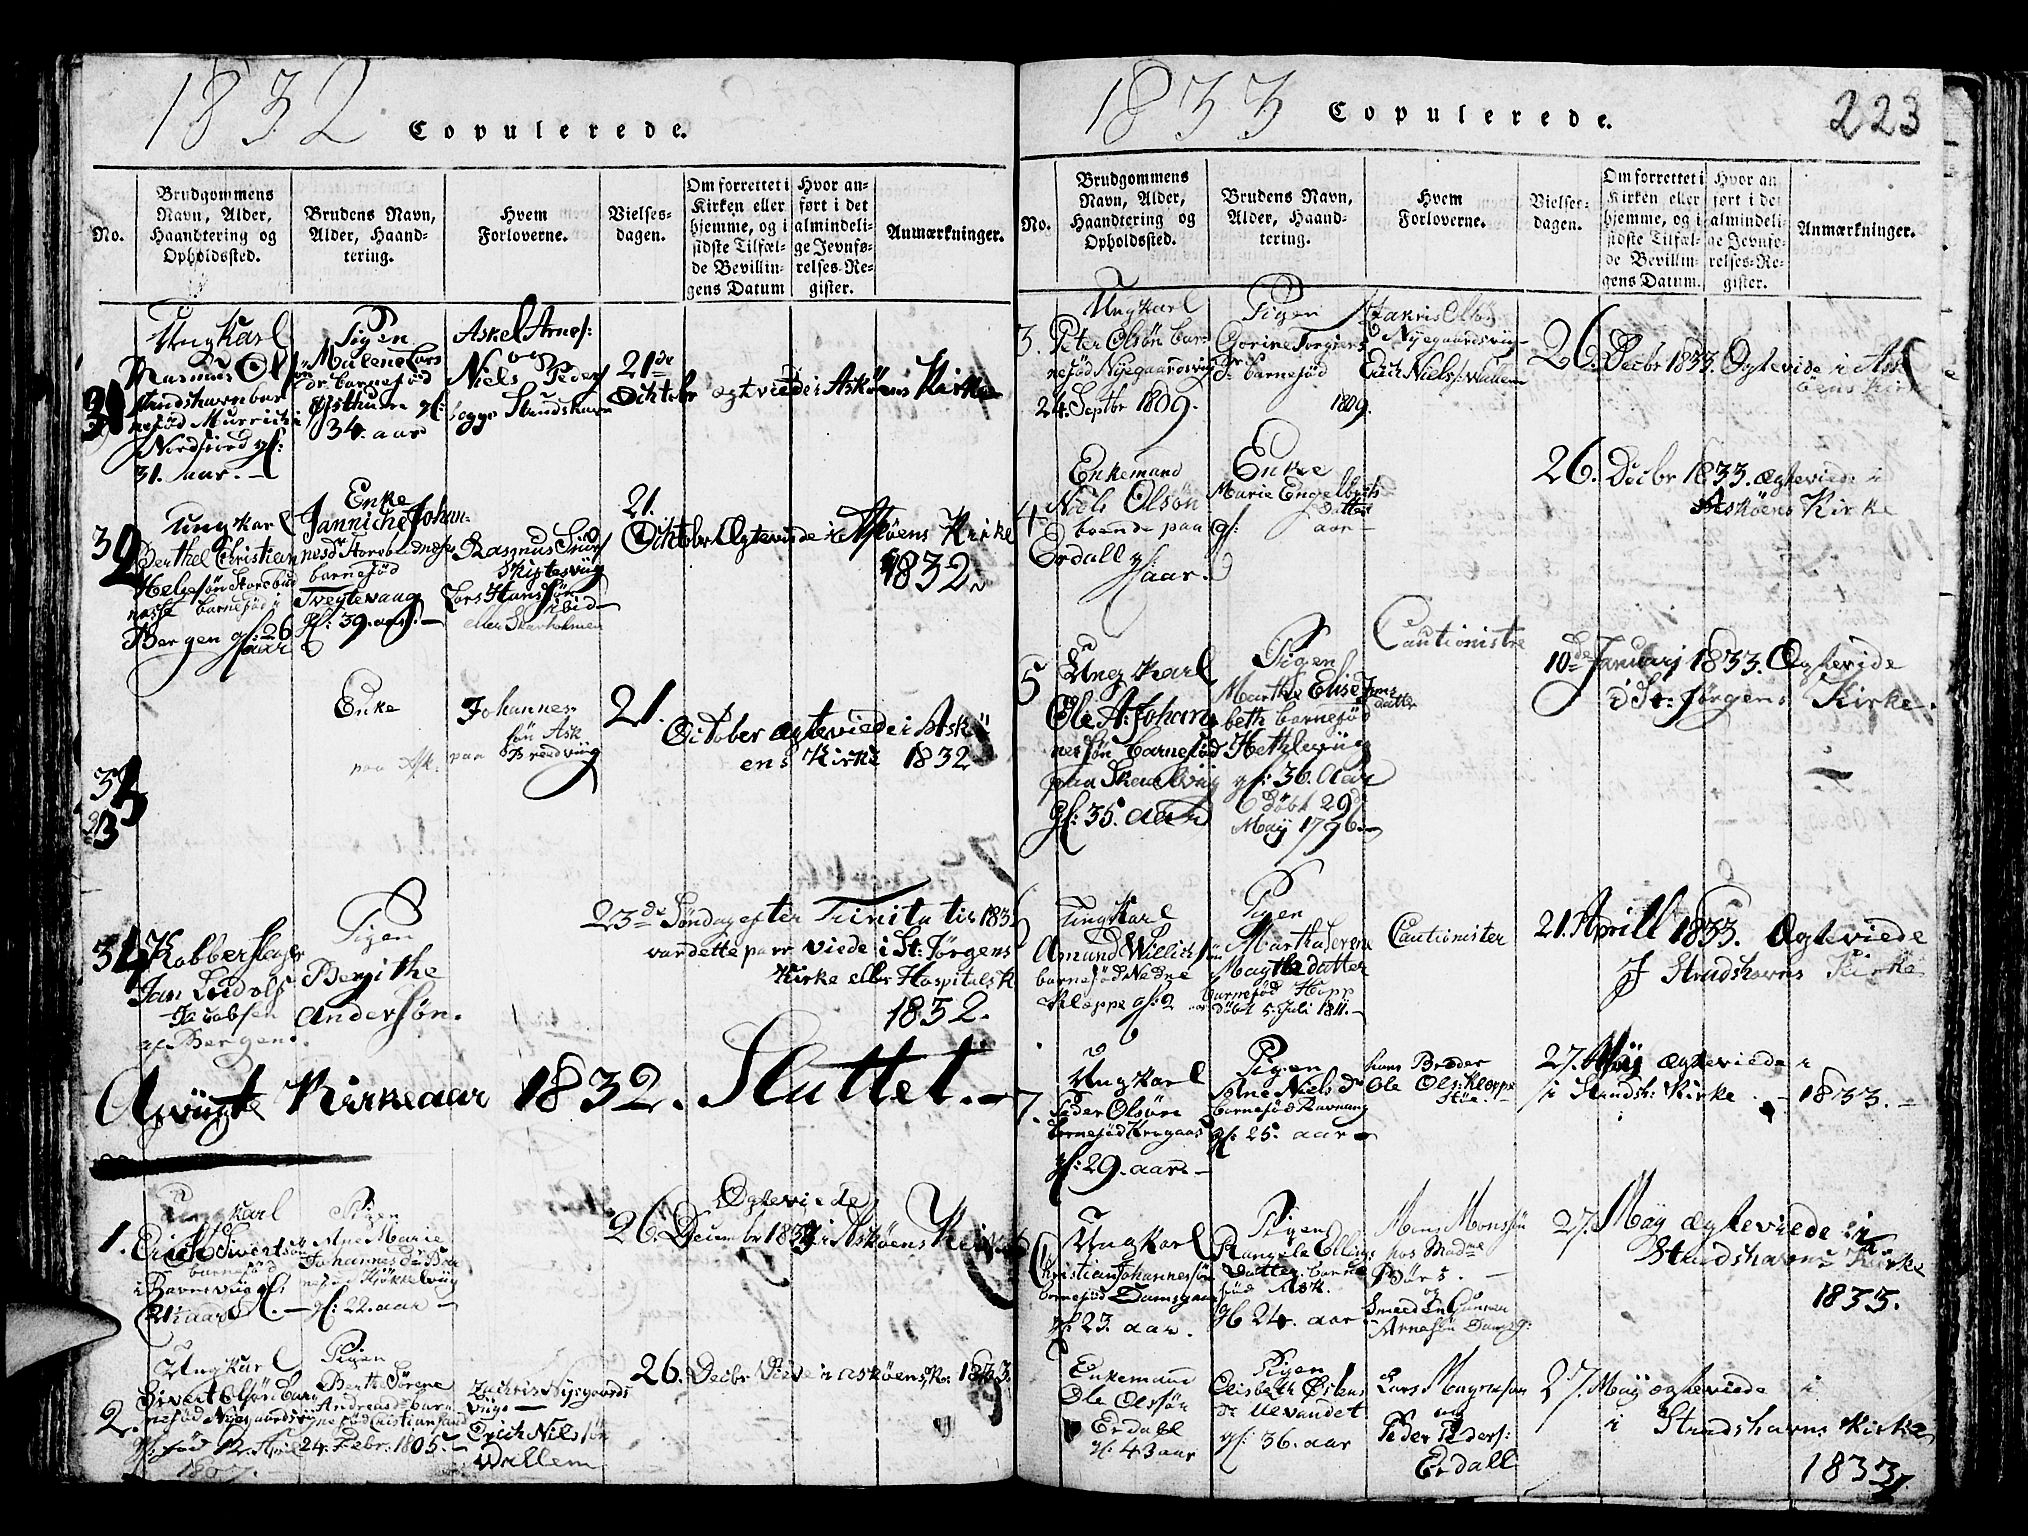 1832
Copulerede.
No.
Brudgommens
Navn, Alder,
Haandtering og
Opholdssted.
Brudens Navn,
Alder, Haand-
tering.
Hvem
Forloverne.
Vielses-
dagen.
Om forrettet i
Kirken eller
hjemme, og i
sidste Tilfæl-
de Bevillin-
gens Datum
Hvor an-
ført i det
almindeli-
ge Jevnfø-
relses-Re-
gister.
Anmærkninger.
31
Ungkarl
Rasmus
31. aar.
Pigen
Malene Lars
dr. barnefød
34. aar
Askel Arnes:
og
Niels Peders
21de
Ochtobr ægtviede i Askøens Kirke
32
Ungkarl
Berthel Christian
Helgesøn
barnefød i
Bergen gl: 26
aar
Enke
Janniche Johan-
barnefød
gl: 39. aar. -
Rasmus
Lars Hansøn
ibid
21.
Ochtobr Ægteviede i Askøens Kirke
1832.
33
Enke
paa Ask.
Johannes
søn Ask
paa Bredvüg
21.
October ægteviede i Askö
ens Kirke 1832
34
Kobberslager
Jan Ludolf
Jacobsen
af Bergen.
Pigen
Berithe
Andersøn.
23de Søndag efter Trinitatis 1832
var dette parr viede i St: Jørgens
Kirke eller Hospitals K
1832.
Kirkeaar 1832. Sluttet. -
1.
Ungkarl
Erick Sivertsøn
barnefød
Pigen
Ane Marie
Johannesdr
gl: 22. aar -
Ægteviede
26. December 1832 i Askøens Kirke
2.
Ungkarl
Sivert Olsøn barn
1807.
Pigen
Berthe Sørene
Andreasdr barn
24. Febr: 1805. -
Zachris Nygaards
vüg -
Erich Nilssøn
Wallem
26. Decbr Viede i Askøens K: 1833.
1833
Copulerede.
223
No.
Brudgommens
Navn, Alder,
Haandtering og
Opholdssted.
Brudens Navn,
Alder, Haand-
tering.
Hvem
Forloverne.
Vielses-
dagen.
Om forrettet i
Kirken eller
hjemme, og i
sidste Tilfæl-
de Bevillin-
gens Datum.
Hvor an-
ført i det
almindeli-
ge Jevnfø-
relses-Re-
gister.
Anmærkninger.
3.
Ungkarl
Peter Olsøn bar
nefød Nyegaardsvig
24. Septbr 1809.
Pigen
Gorine Torgiers
dr barnefød
1809.
Zakris Olsøn
Nyegaardsvig
Erich Niels: Wallem
26. Decbr 1833. Ægteviede i Ask
öens Kirk
4
Enkemand
Niels Olsøn
boende paa
Erdall gl:
aar.
Enke
Marie Engelbrets
datter
gl: aar
26. Decbr 1833. ægteviede i
Askøens Kirke
5
Ungkarl
Ole A: Johan
nessøn barnefød
paa
gl: 35. aar
Pigen
Marthe Elisa Jens
datter
beth barnefød
Hetlevüg
gl: 36. Aar
Døbt 29d
Maÿ 1796. -
Cautionistre
10de Januarj 1833. Ægtevide
i St: Jørgens Kirke.
6
Ungkarl
Amund Willichsøn
barnefød Nedre
Kloppe gl: 2
Pigen
Martha Serena
Magthedatter
barnefød Hopp
Døbt 5. Juli 1811. -
Cautionister
21. Aprill 1833. Ægteviede
I Strudshavns Kirke
7.
Ungkarl
Peder Olsøn
barnefød
gl: 29. aar. -
Pigen
Ane Nielsdr
barnefød Ravnang
gl: 25. aar -
hans Broder
Ole Ols: Kloppe
27. Maÿ ægteviede i
i Strudsh: Kirke. - 1833. -
Ungkarl
Christian Johannessøn
barnefød Damsgaard
gl: 23. aar.
Pigen
Rangele Ollings
datter barne
fød Ask.
gl: 24. aar
Mons Monssøn
hos Madme
Børs. -
og
Smeeden Gunner
Arnesøn Damsg:
27. Maÿ ægteviede i
Strudshavns Kirke
1833.
Enkemand
Ole Olssøn
Erdahl
gl: 43 aar
Pigen
Elisbeth Østens
dr Ulvandet
gl: 36. aar
Lars Magnesøn
og
Peder Peders:
Erdall
27. Maÿ ægteviede i
i Strudshavns Kirke
1833.